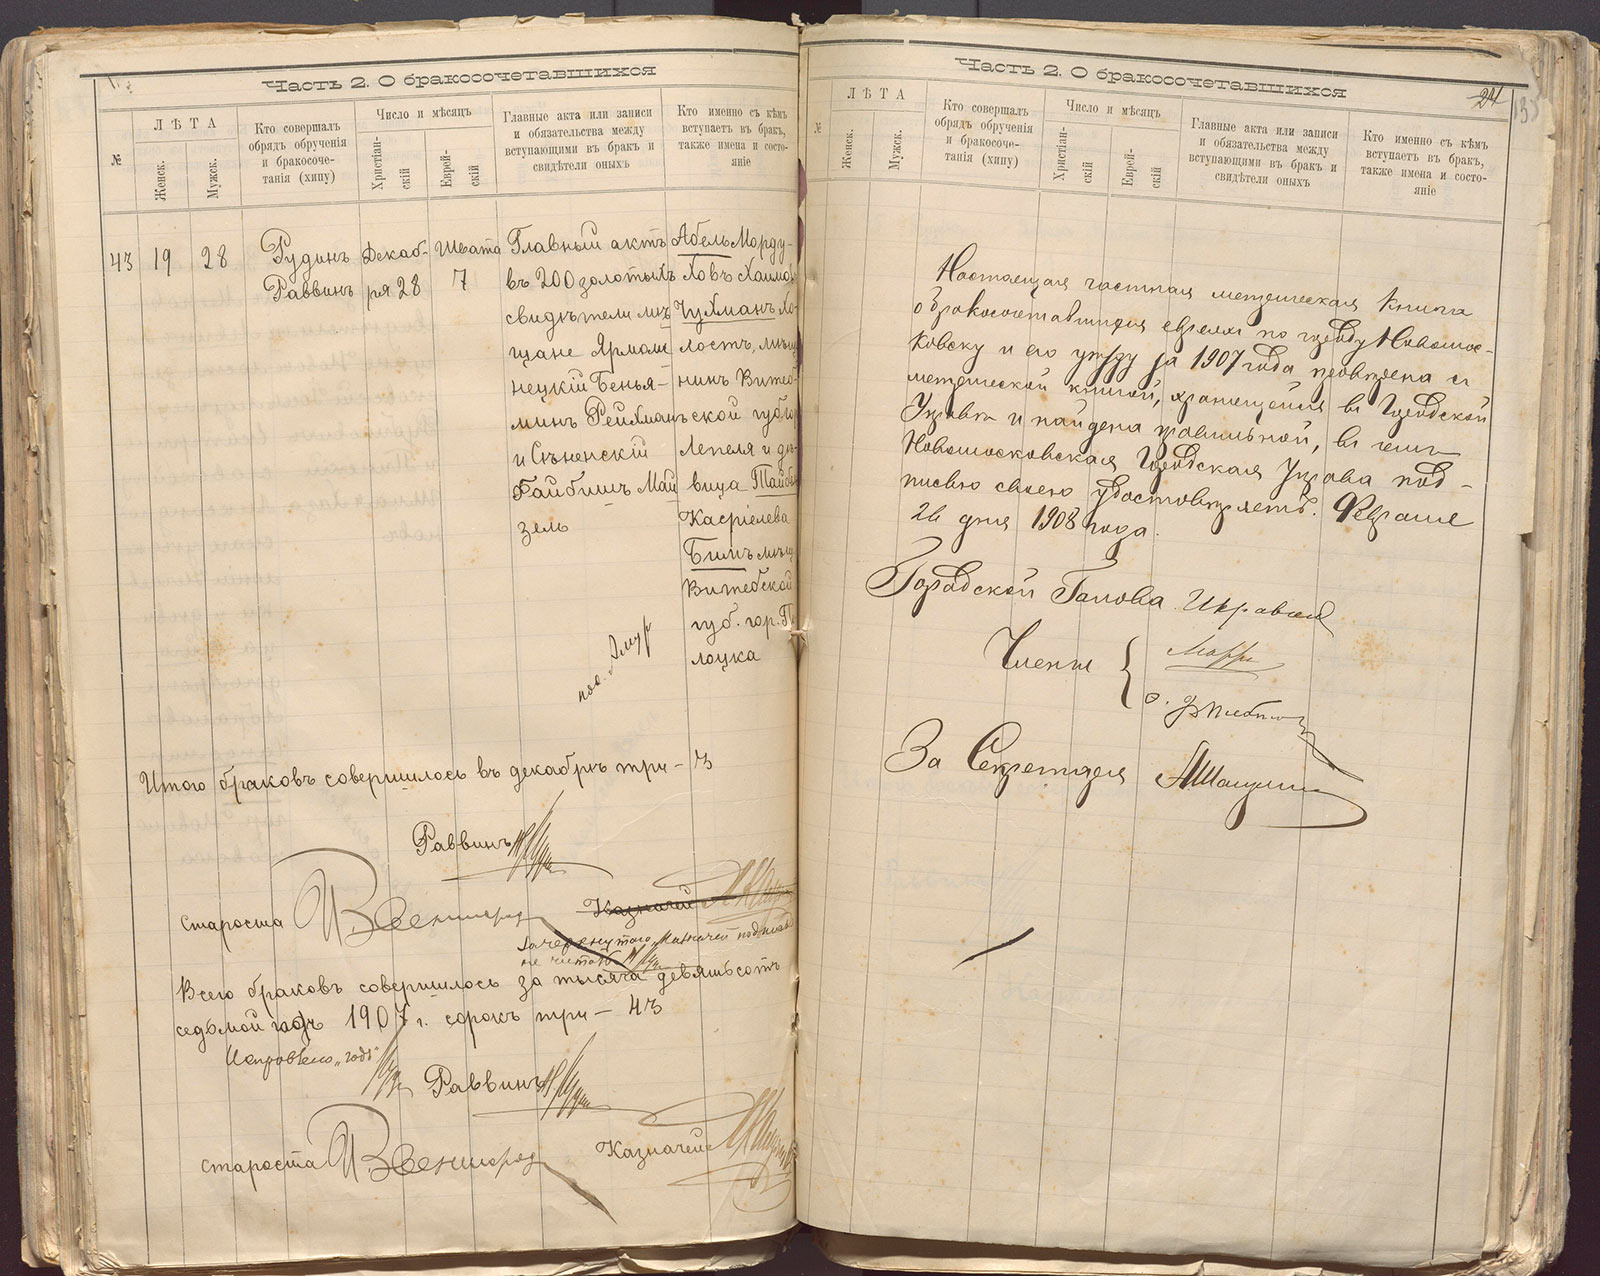 Часть 2. О бракосочетавшихся
№
ЛѢТА
Женск.
Мужск.
Кто совершалъ обрядъ обрученія и бракосоче-танія (хипу)
Число и мѣсяцъ
Христіан-скій
Еврей-скій
Главные акта или записи и обязательства между вступающими въ бракъ и свидѣтели оныхъ
Кто именно съ кѣмъ вступаетъ въ бракъ, также имена и состо-яніе
43
19
28
Рудинъ
Раввинъ
Декаб-
ря 28
Швата
7
Главный актъ
въ 200 золотыхъ
свидѣтели мѣ
щане Ярмоли
нецкій Бенья-
минъ Рейхманъ
и Сѣненскій
Файбишъ Май
зель
Абель Морду-
ховъ Хаимов
Чухманъ хо-
лостъ, мѣщ
нинъ Витеб
ской губ. го
Лепеля и дѣ-
вица Тайбе
Касріелева
Бимъ мѣщ
Витебской
губ. гор. П
лоцка
Итого браковъ совершилось въ декабрѣ три – 3
Раввинъ
Староста
Казначей
Зачеркнутаго „Казначей подпись"
не читать
Всего браковъ совершилось за тысяча девятьсотъ
седьмой годъ 1907 г. сорокъ три – 43
Исправлено „годъ"
Раввинъ
Староста
Казначей
Часть 2. О бракосочетавшихся
24
№
ЛѢТА
Женск.
Мужск.
Кто совершалъ обрядъ обрученія и бракосоче-танія (хипу)
Число и мѣсяцъ
Христіан-скій
Еврей-скій
Главные акта или записи и обязательства между вступающими въ бракъ и свидѣтели оныхъ
Кто именно съ кѣмъ вступаетъ въ бракъ, также имена и состо-яніе
Настоящая частная метрическая книга
о бракосочетавшихся евреяхъ по городу Новомос-
ковску и его уѣзду за 1907 года провѣрена съ
метрической книгой, хранящейся въ Городской
Управѣ и найдена правильной, въ чемъ
Новомосковская Городская Управа под-
писью своею удостовѣряетъ. Февраля
26 дня 1908 года.
Городской Голова
Члены
За Секретаря